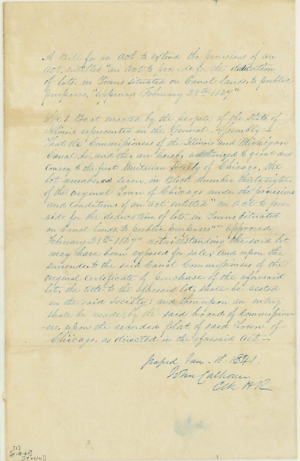 A Bill for an Act to extend the provisions of an
Act, entitled "an act to provide for the dedication
of lots in Towns situated on Canal lands to public
purposes," approved February 28th 1837
Sec. 1 Be it enacted by the people of the State of
Illinois represented in the General Assembly
That the Commissioners of the Illinois and Michigan
Canal be, and they are hereby authorized to grant and
convey to the first Unitarian Society of Chicago, the
lot numbered seven, in Block number thirty eight
of the original Town of Chicago under the provisions
and conditions of an Act entitled "an Act to pro-
vide for the dedication of lots in Towns situated
on Canal lands to public purposes" approved
February 28th 1837 notwithstanding the said lot
may have been exposed for sale; and upon the
surrender to the said Canal Commissioners of the
original certificate of purchase of the aforesaid
lot, the title to the aforesaid lot, shall be vested
in the said Society; and thereupon an entry
shall be made by the said board of Commission-
ers upon the recorded plat of said Town of
Chicago, as directed in the aforesaid Act.
passed Jan. 1841
John Calhoun
Clk H R